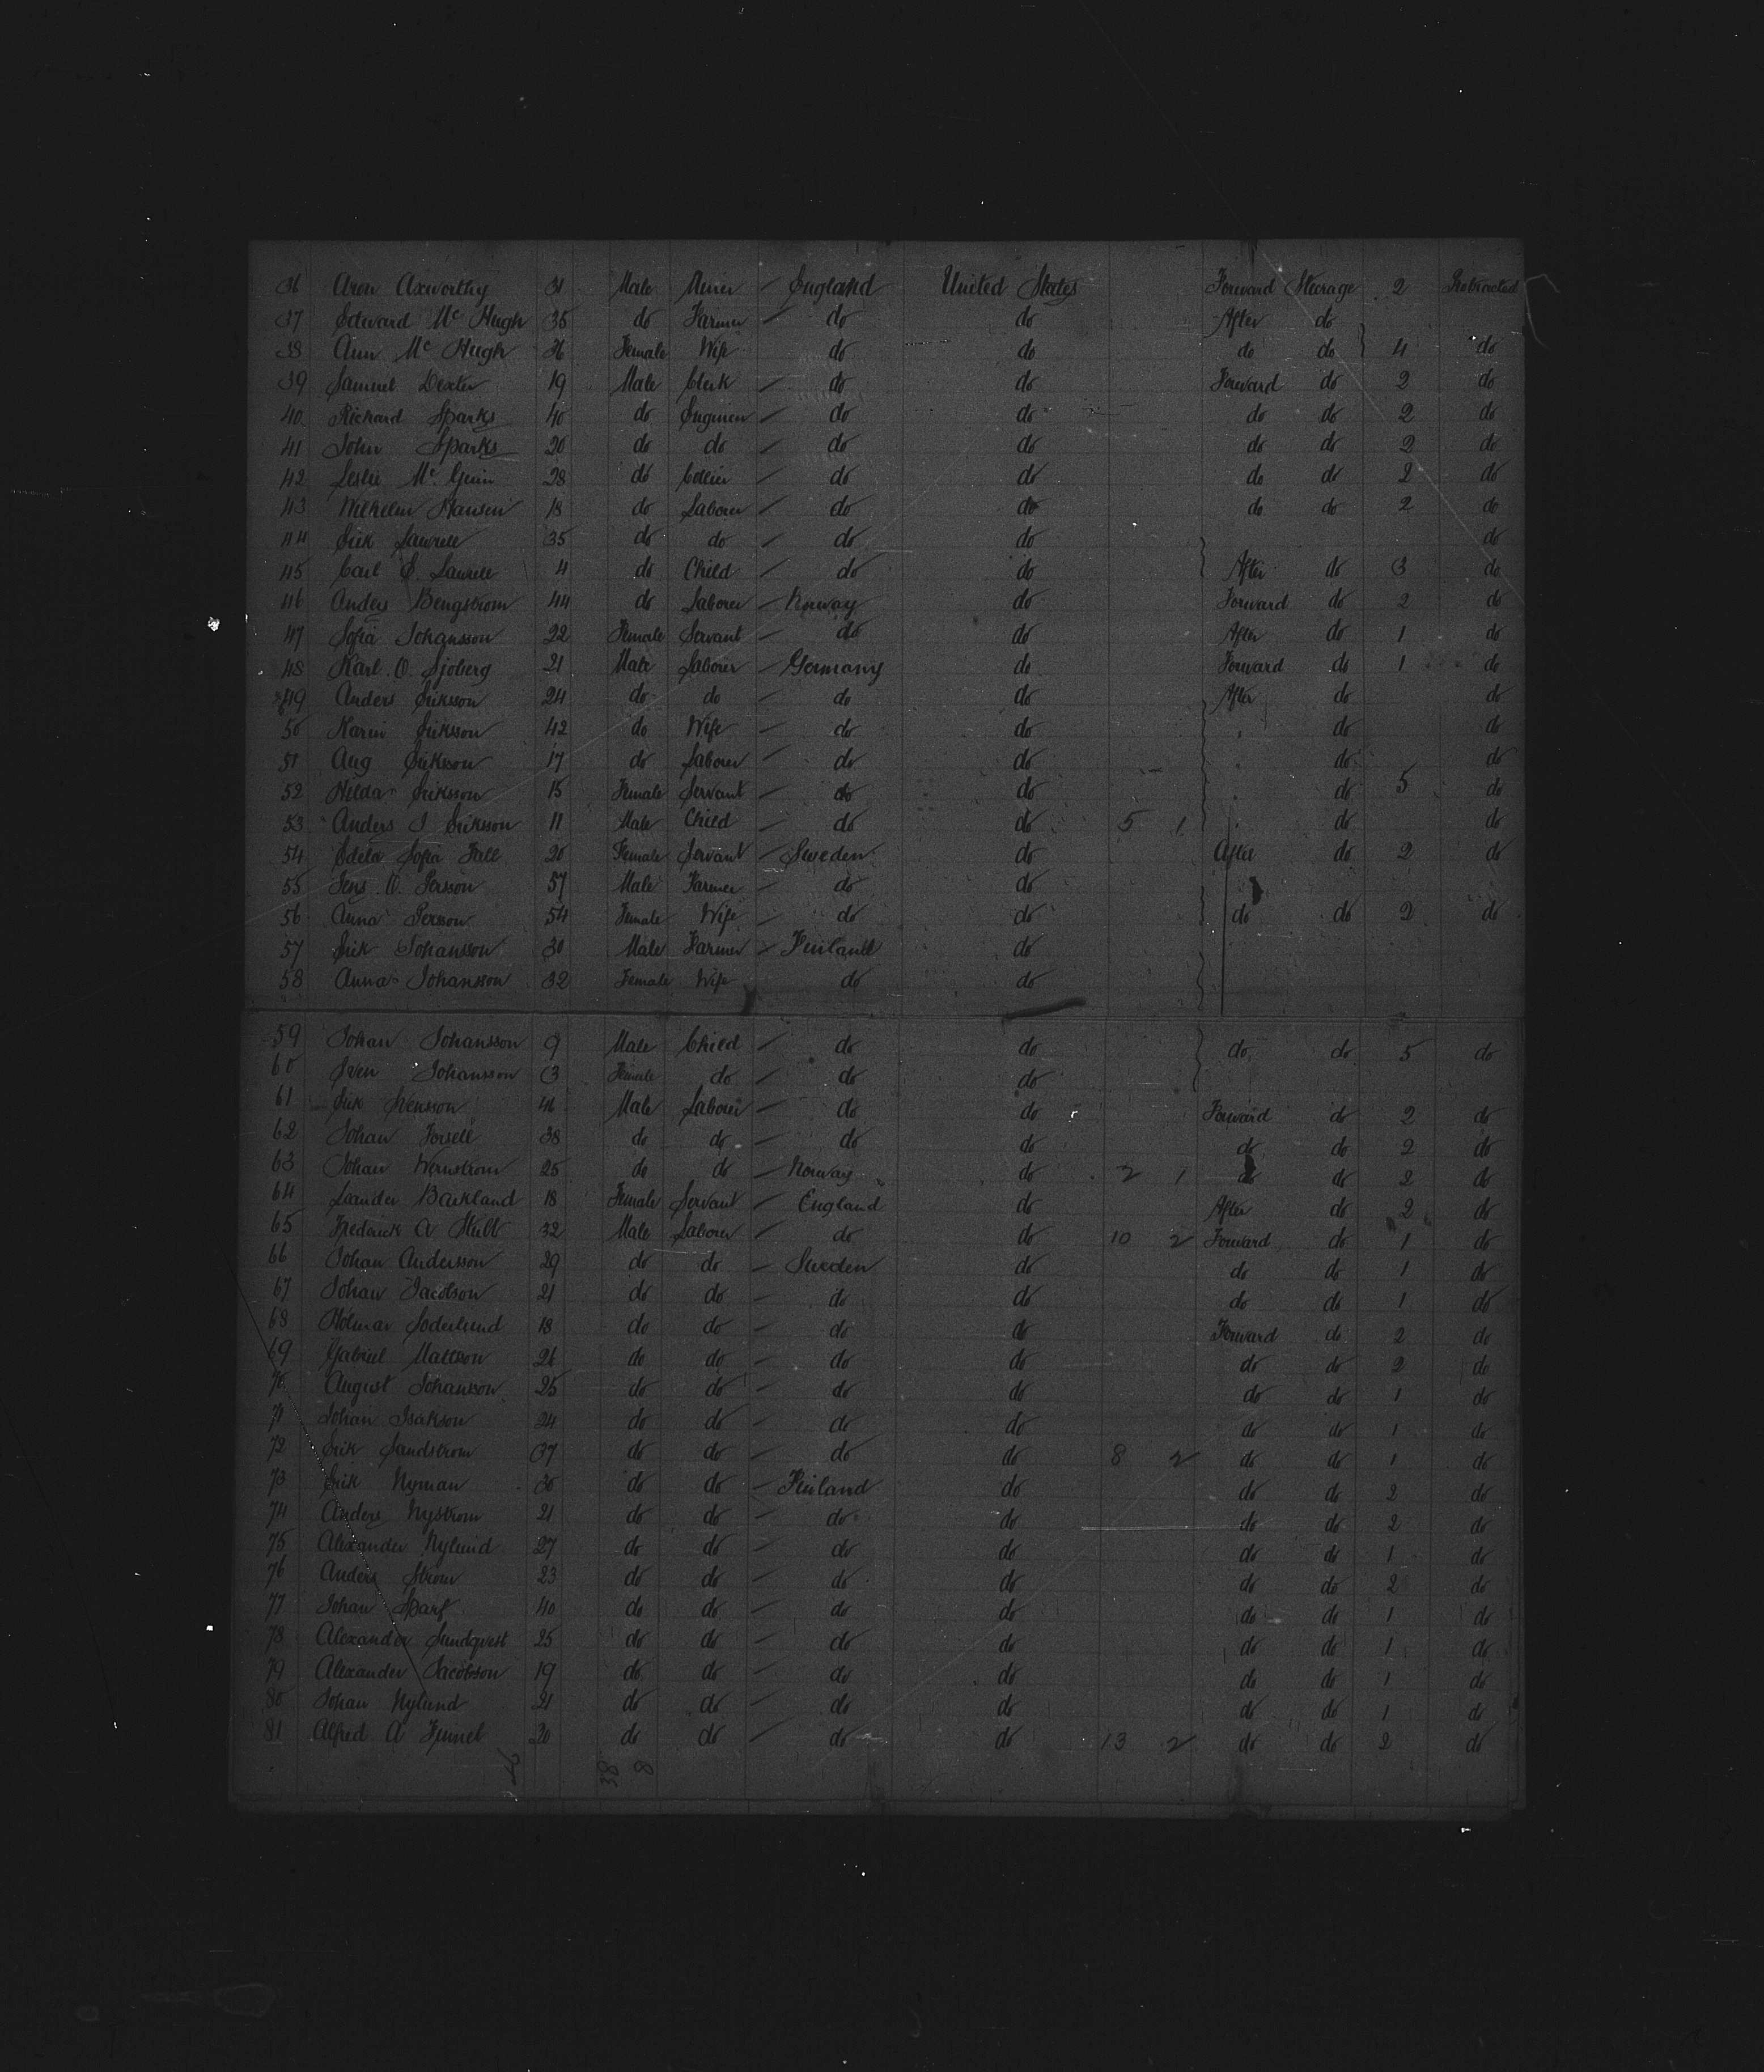 36 Aron Axworthy 31 Male Miner England United States Forward Steerage 2 Protracted
37 Edward Mc Hugh 35 do Farmer do do After do
38 Ann Mc Hugh 36 Female Wife do do do do 4 do
39 Samuel Dexter 19 Male Clerk do do Forward do 2 do
40 Richard Sparks 40 do Engineer do do do do 2 do
41 John Sparks 20 do do do do do do 2 do
42 Leslie Mc 28 do Collier do do do do 2 do
43 Wilhelm Hansen 18 do Laborer do do do do 2 do
44 Erik Laurell 35 do do do do do
45 Carl E. Laurell 4 do Child do do After do 3 do
46 Anders Bengstrom 44 do Laborer Norway do Forward do 2 do
47 Sofia Johansson 22 Female Servant do do After do 1 do
48 Karl O. Sjoberg 21 Male Laborer Germany do Forward do 1 do
49 Anders Eriksson 24 do do do do After do do
50 Karin Eriksson 42 do Wife do do do do
51 Aug Eriksson 17 do Laborer do do do do
52 Hilda Eriksson 15 Female Servant do do do 5 do
53 Anders J Eriksson 11 Male Child do do 5 1 do do
54 Edela Sofia Fall 20 Female Servant Sweden do After do 2 do
55 Jens O. Persson 57 Male Farmer do do
56 Anna Persson 54 Female Wife do do do do 2 do
57 Erik Johansson 30 Male Farmer Finland do
58 Anna Johansson 32 Female Wife do do
59 Johan Johansson 9 Male Child do do do do 5 do
60 Sven Johansson 3 Female do do do
61 Erik Svensson 46 Male Laborer do do Forward do 2 do
62 Johan Forsell 38 do do do do do do 2 do
63 Johan Wernstrom 25 do do Norway do 2 1 do do 2 do
64 Leander Backland 18 Female Servant England do After do 2 do
65 Frederick A Stubb 32 Male Laborer do do 10 2 Forward do 1 do
66 Johan Andersson 29 do do Sweden do do do 1 do
67 Johan Jacobson 21 do do do do do do 1 do
68 Holmar Soderlund 18 do do do do Forward do 2 do
69 Gabriel Mattson 26 do do do do do do 2 do
70 August Johanson 25 do do do do do do 1 do
71 Johan Isakson 24 do do do do do do 1 do
72 Erik Sandstrom 37 do do do do 8 2 do do 1 do
73 Erik Nyman 30 do do Finland do do do 2 do
74 Anders Nystrom 21 do do do do do do 2 do
75 Alexander Nylund 27 do do do do do do 1 do
76 Anders Strom 23 do do do do do do 2 do
77 Johan Sparf 40 do do do do do do 1 do
78 Alexander Sundqvist 25 do do do do do do 1 do
79 Alexander Jacobson 19 do do do do do do 1 do
80 Johan Nylund 21 do do do do do do 1 do
81 Alfred A 20 do do do do 13 2 do do 2 do
38 8